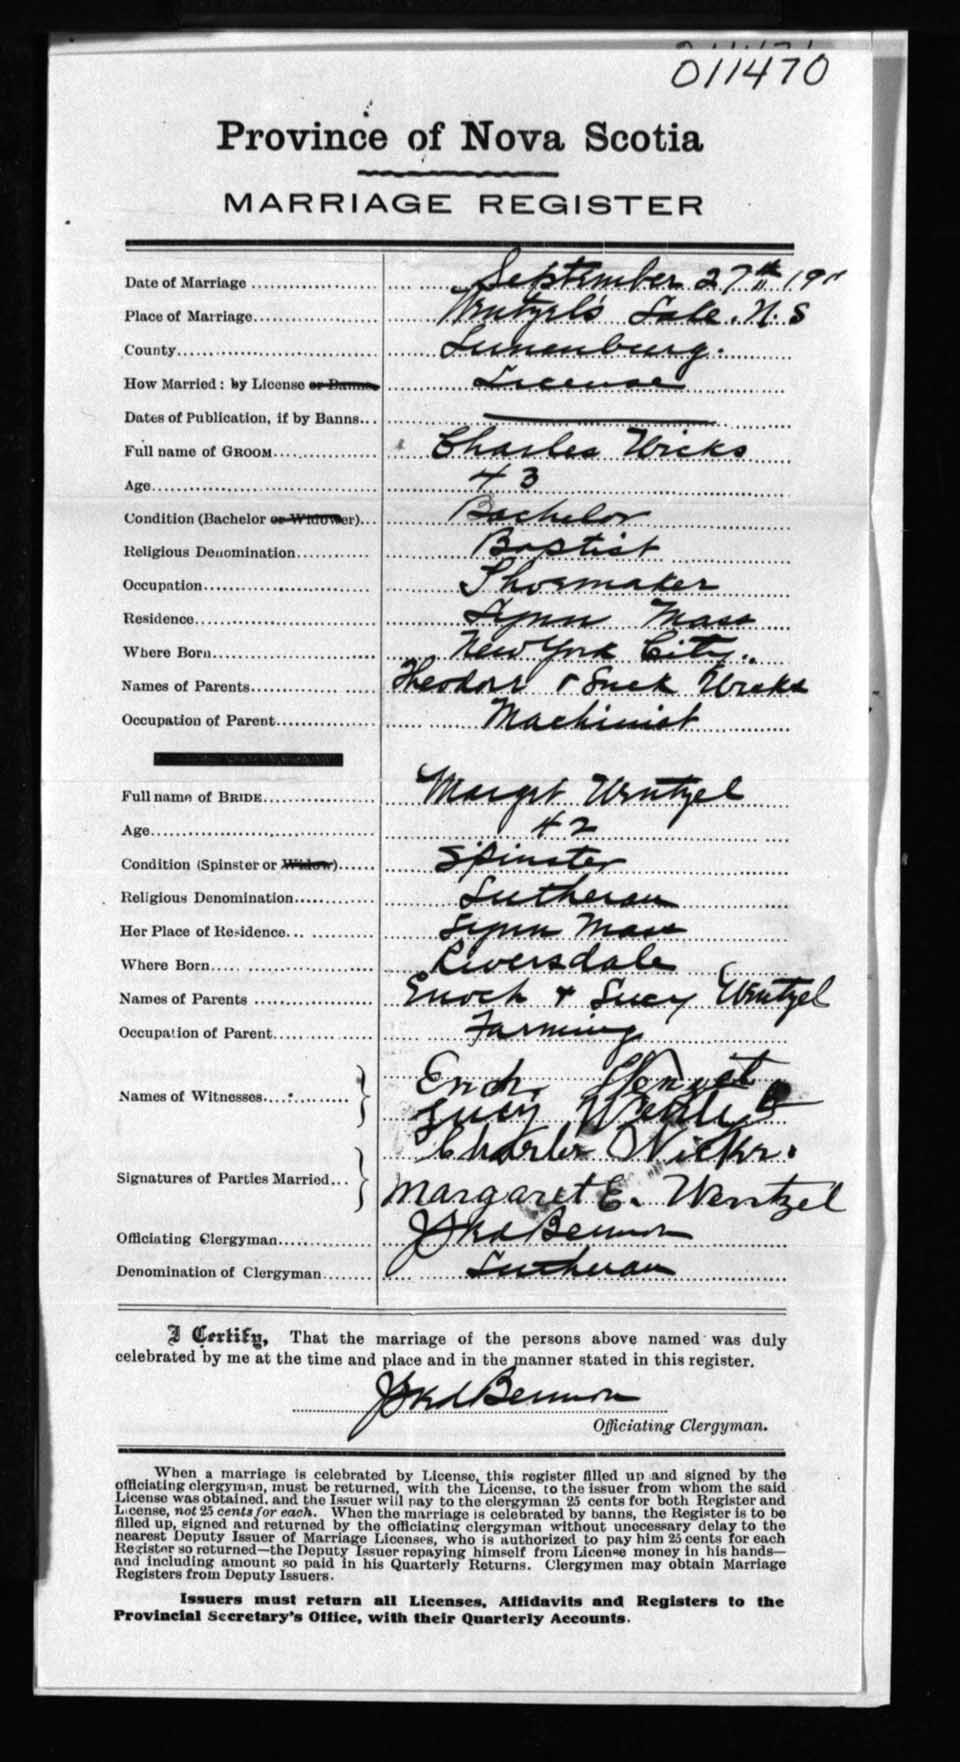 011470
Province of Nova Scotia
MARRIAGE REGISTER
Date of Marriage September 27th 19
Place of Marriage Wentzel's Lake. N. S
County Lunenburg.
How Married: by License or Banns License
Dates of Publication, if by Banns
Full name of GROOM Charles Wicks
Age 43
Condition (Bachelor or Widower) Bachelor
Religious Denomination Baptist
Occupation Shoemaker
Residence Lynn Mass
Where Born New York City.
Names of Parents Theodore & Wicks
Occupation of Parent Machinist
Full name of BRIDE Margt Wentzel
Age 42
Condition (Spinster or Widow) Spinster
Religious Denomination Lutheran
Her Place of Residence Lynn Mass
Where Born Riversdale
Names of Parents Enoch & Lucy Wentzel
Occupation of Parent Farming
Names of Witnesses
Lucy
Charles Wicks.
Signatures of Parties Married
Margaret E. Wentzel
Officiating Clergyman
Denomination of Clergyman Lutheran
I Certify, That the marriage of the persons above named was duly
celebrated by me at the time and place and in the manner stated in this register.
Officiating Clergyman.
When a marriage is celebrated by License, this register filled up and signed by the
officiating clergyman, must be returned, with the License, to the issuer from whom the said
License was obtained, and the Issuer will pay to the clergyman 25 cents for both Register and
License, not 25 cents for each. When the marriage is celebrated by banns, the Register is to be
filled up, signed and returned by the officiating clergyman without unnecessary delay to the
nearest Deputy Issuer of Marriage Licenses, who is authorized to pay him 25 cents for each
Register so returned—the Deputy Issuer repaying himself from License money in his hands—
and including amount so paid in his Quarterly Returns. Clergymen may obtain Marriage
Registers from Deputy Issuers.
Issuers must return all Licenses, Affidavits and Registers to the
Provincial Secretary's Office, with their Quarterly Accounts.